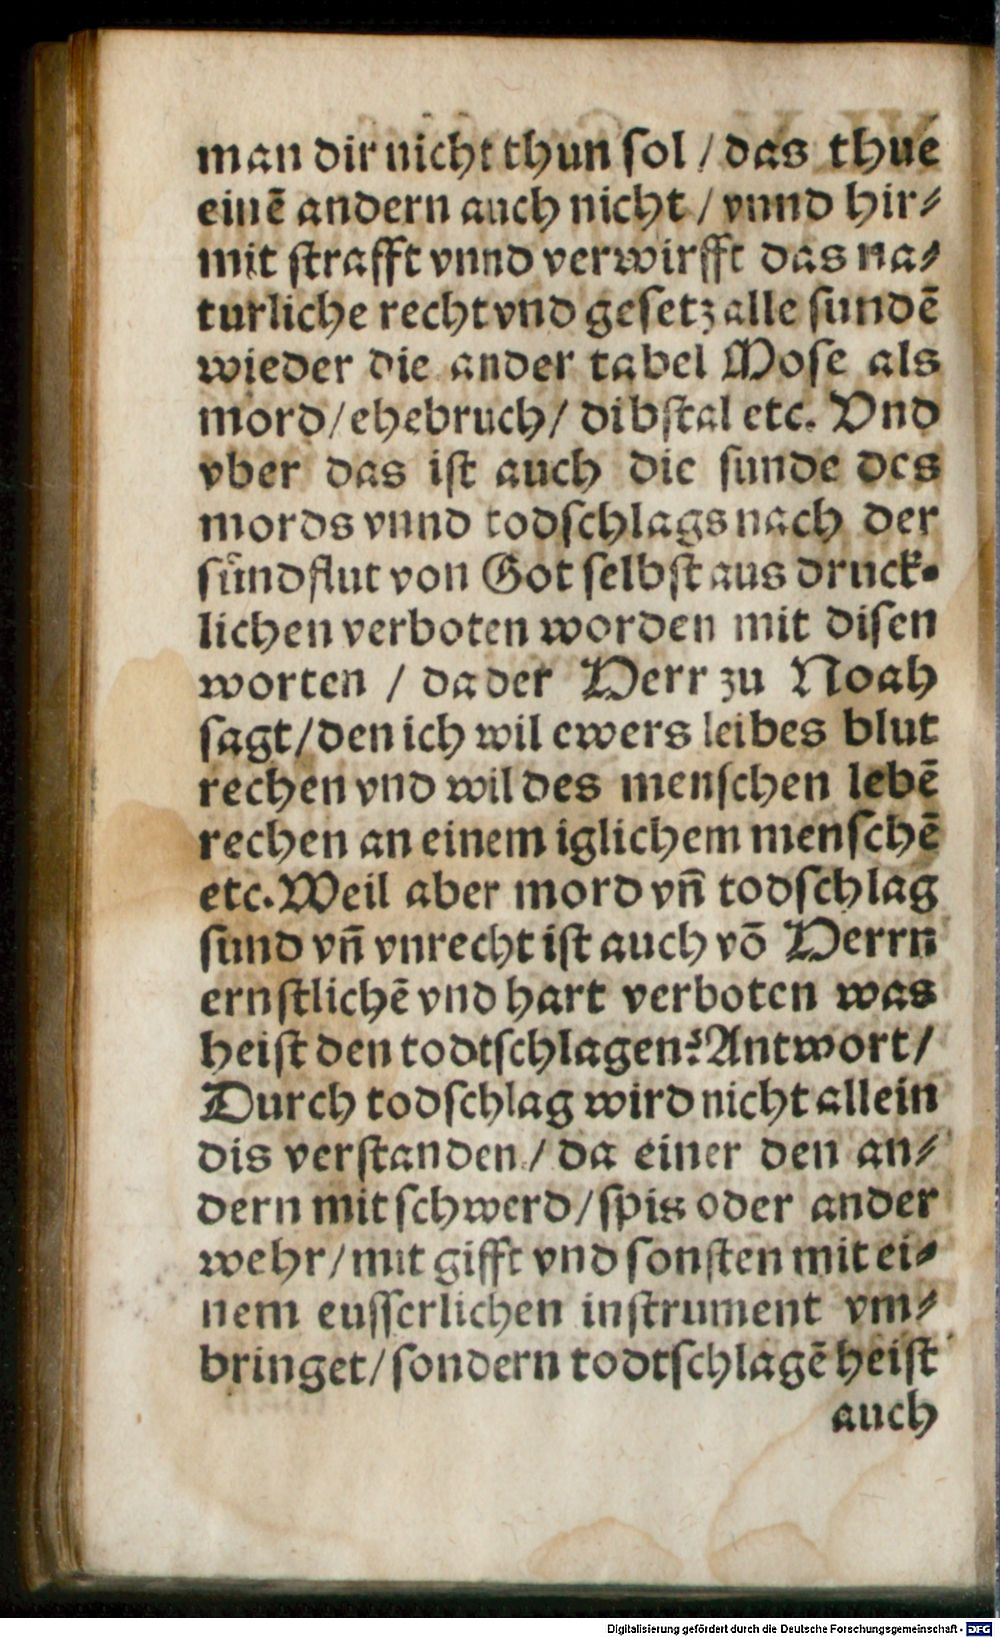 man dir nicht thun ſol / das thue
einē andern auch nicht / vnnd hir⸗
mit ſtrafft vnnd verwirfft das na⸗
turliche recht vnd geſetz alle ſundē
wieder die ander tabel Moſe als
mord / ehebruch / dibſtal etc. Vnd
vber das iſt auch die ſunde des
mords vnnd todſchlags nach der
ſündflut von Got ſelbſt aus druck⸗
lichen verboten worden mit diſen
worten / da der Herr zu Noah
ſagt / den ich wil ewers leibes blut
rechen vnd wil des menſchen lebē
rechen an einem iglichem menſchē
etc. Weil aber mord vñ todſchlag
ſund vñ vnrecht iſt auch vō Herrn
ernſtlichē vnd hart verboten was
heiſt den todtſchlagen? Antwort /
Durch todſchlag wird nicht allein
dis verſtanden / da einer den an⸗
dern mit ſchwerd / ſpis oder ander
wehr / mit gifft vnd ſonſten mit ei⸗
nem euſſerlichen inſtrument vm⸗
bringet / ſondern todtſchlagē heiſt
auch
Digitalisierung gefördert durch die Deutsche Forschungsgemeinschaft - DFG